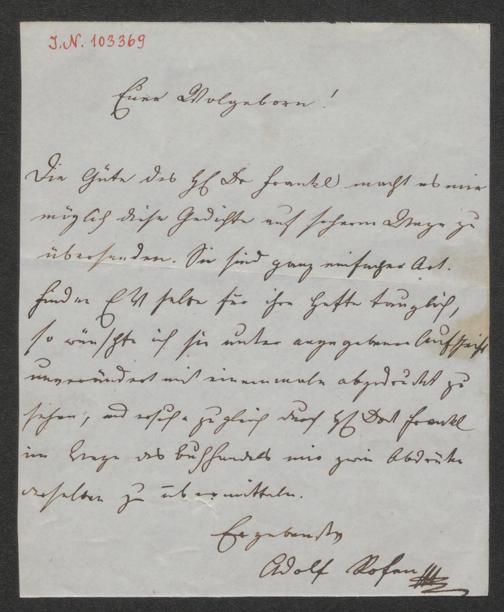 I.N. 103369
Euer Wolgeborn!
Die Güte des H Dr Frankl macht es mir
möglich diese Gedichte auf sicherm Wege zu
übersenden. Sie sind ganz einfacher Art.
Finden EW selbe für ihre Hefte tauglich,
so wünschte ich sie unter angegebener Aufschrift
unverändert mit einemmale abgedruckt zu
sehen, und ersuche zugleich durch H Dr Frankl
im Wege des Buchhandels mir zwei Abdrücke
derselben zu übermitteln.
Ergebenster
Adolf